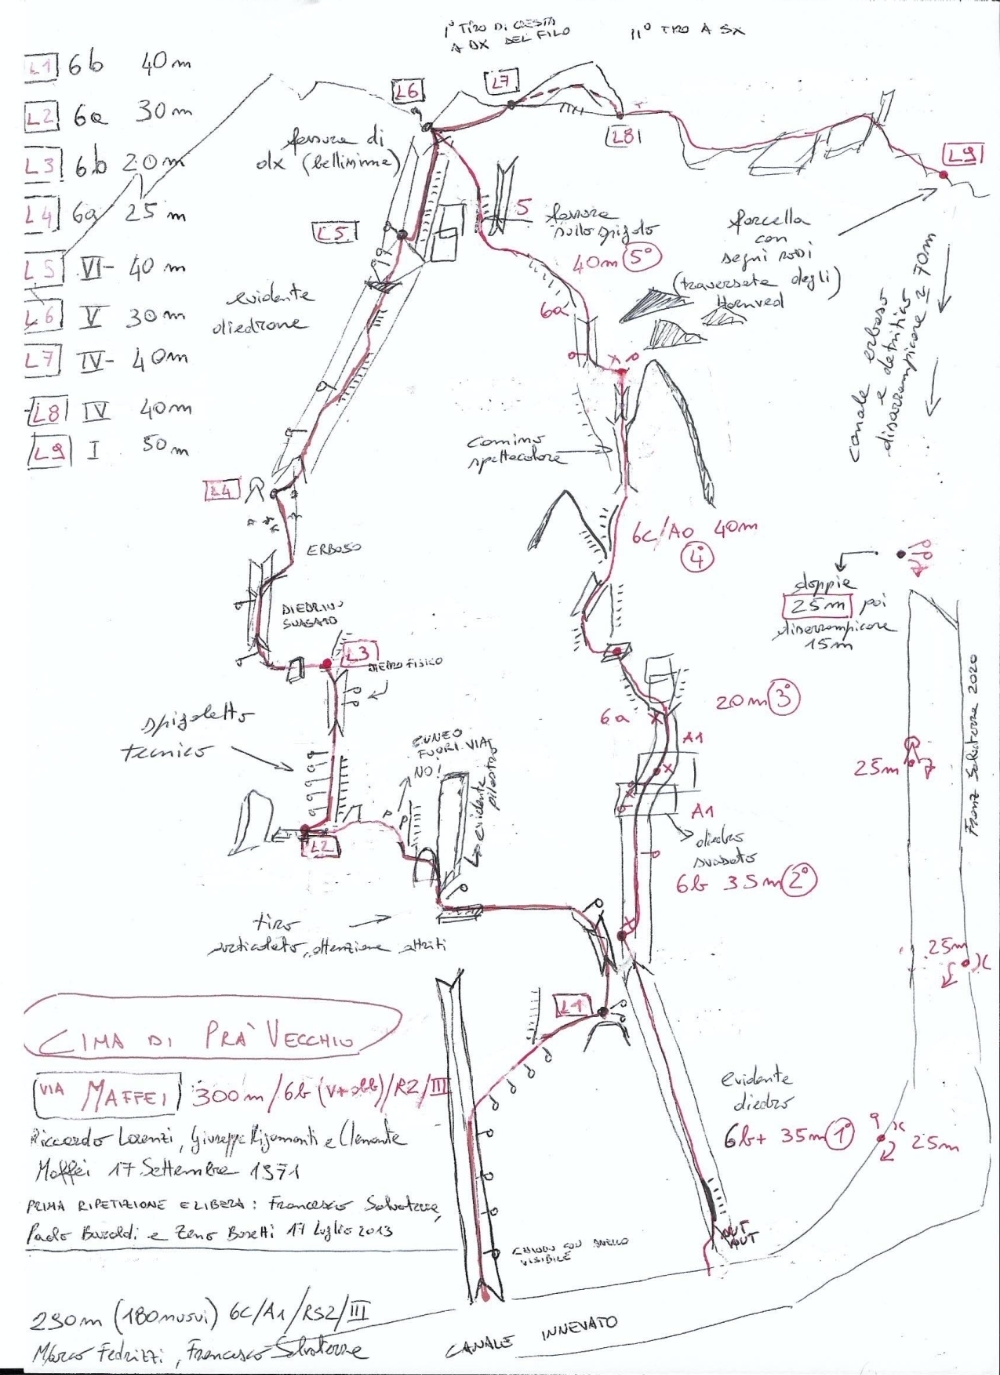 1° TIRO DI CRESTA
A DX DEL FILO
11° TIRO A SX
L1 6b 40m
L2 6a 30m
L3 6b 20m
L4 6a 25m
L5 VI- 40m
L6 V 30m
L7 IV- 40m
L8 IV 40m
L9 I 50m
L6
L7
L8
L9
fessura di
dx (bellissima)
L5
evidente
diedrone
5
fessura
sullo spigolo
40m 5°
6a
forcella
con
segni rossi
(traversata degli
Hornved
canale erboso
e detritico
disarrampicare ± 70m
camino
spettacolare
L4
ERBOSO
6c/A0 40m
4°
DIEDRINO
SVASATO
L3
DIETRO FISICO
spigoletto
tecnico
CUNEO
FUORI VIA
NO!
evidente
pilastro
L2
20m 3°
6a
A1
A1
diedro
svasato
6b 35m 2°
tiro
articolato, attenzione attriti
L1
doppie
25m poi
disarrampicare
15m
25m
25m
25m
Franz Salvaterra 2020
evidente
diedro
6b+ 35m 1°
NUT
NUT
CHIODO CON ANELLO
VISIBILE
CANALE INNEVATO
CIMA DI PRA' VECCHIO
VIA MAFFEI 300m/6b (V+obb)/R2/III
Riccardo Lorenzi, Giuseppe Rigamonti e Clemente
Maffei 17 Settembre 1971
PRIMA RIPETIZIONE E LIBERA: Francesco Salvaterra,
Paolo Baroldi e Zeno Bosetti 17 luglio 2013
230m (180 nuovi) 6c/A1/RS2/III
Marco Fedrizzi, Francesco Salvaterra